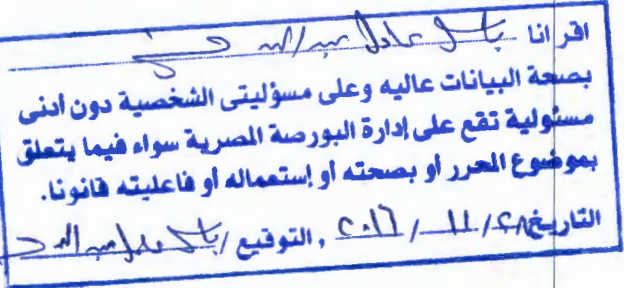 اقر انا باسل عادل عبد
بصحة البيانات عاليه وعلى مسؤليتى الشخصية دون أدنى
مسئولية تقع على إدارة البورصة المصرية سواء فيما يتعلق
بموضوع المحرر أو بصحته أو إستعماله أو فاعليته قانونا.
التاريخ ٢٨ / ١١ / ٢٠١٦ , التوقيع / باسل عادل عبد